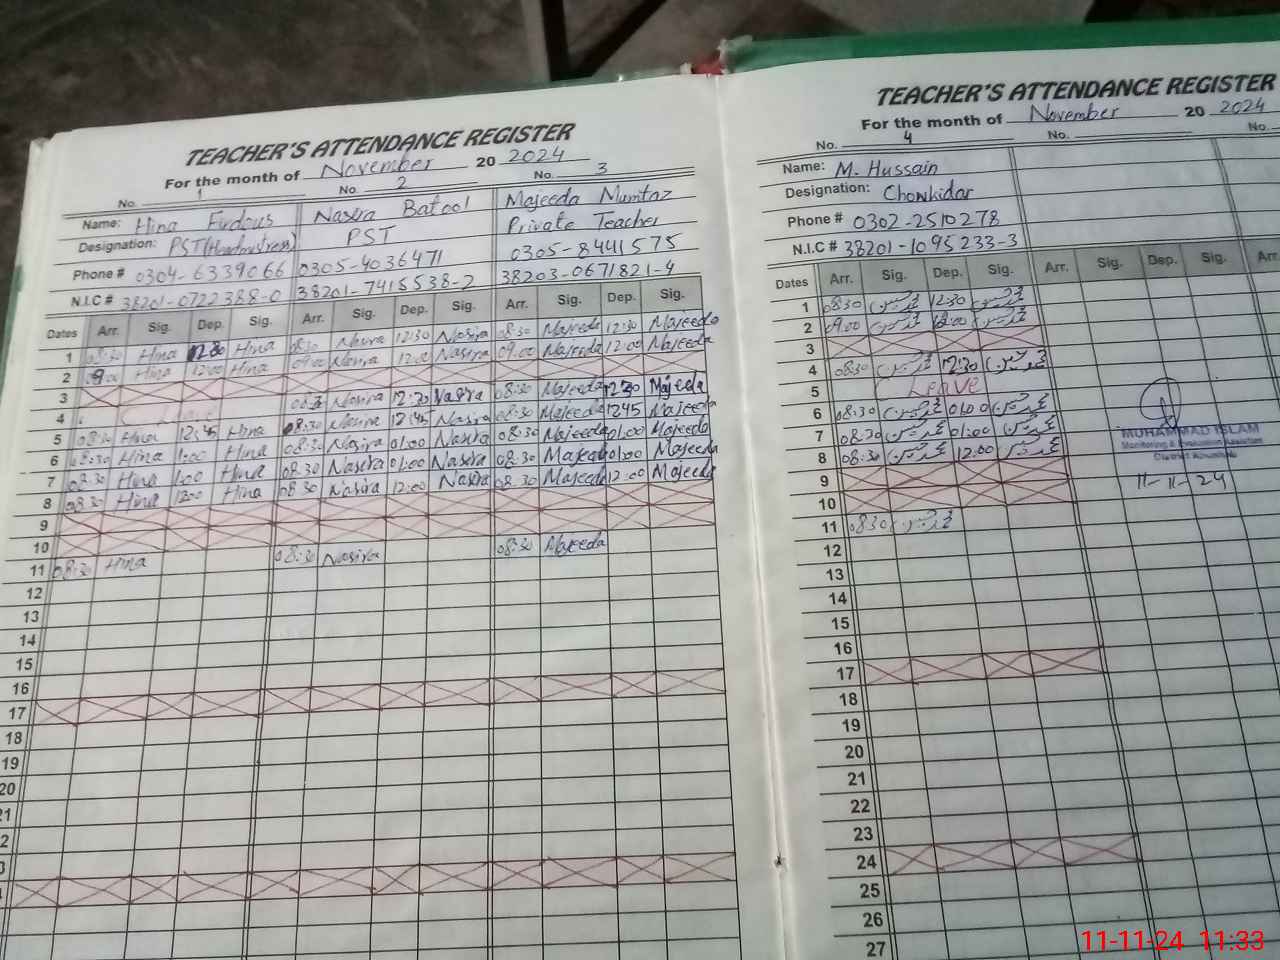 TEACHER'S ATTENDANCE REGISTER
For the month of November 20 2024
No. 1 No 2 No. 3
Name: Hina Firdous Nasira Batool Majeeda Mumtaz
Designation: PST(Headmistress) PST Private Teacher
Phone # 0304-6339066 0305-4036471 0305-8441575
N.I.C # 38201-0722388-0 38201-7415538-2 38203-0671821-4
Dates Arr. Sig. Dep. Sig. Arr. Sig. Dep. Sig. Arr. Sig. Dep. Sig.
1 08:30 Hina 12:30 Hina 08:30 Nasira 12:30 Nasira 08:30 Majeeda 12:30 Majeeda
2 09:00 Hina 12:00 Hina 09:00 Nasira 12:00 Nasira 09:00 Majeeda 12:00 Majeeda
3
4 Leave 08:30 Nasira 12:30 Nasira 08:30 Majeeda 12:30 Majeeda
5 08:30 Hina 12:45 Hina 08:30 Nasira 12:45 Nasira 08:30 Majeeda 1245 Majeeda
6 08:30 Hina 1:00 Hina 08:30 Nasira 01:00 Nasira 08:30 Majeeda 01:00 Majeeda
7 08:30 Hina 1:00 Hina 08:30 Nasira 01:00 Nasira 08:30 Majeeda 01:00 Majeeda
8 08:30 Hina 1200 Hina 08:30 Nasira 12:00 Nasira 08:30 Majeeda 12:00 Majeeda
9
10
11 08:30 Hina 08:30 Nasira 08:30 Majeeda
12
13
14
15
16
17
18
19
20
TEACHER'S ATTENDANCE REGISTER
For the month of November 20 2024
No. 4 No. No.
Name: M. Hussain
Designation: Chowkidar
Phone # 0302-2510278
N.I.C # 38201-1095233-3
Dates Arr. Sig. Dep. Sig. Arr. Sig. Dep. Sig. Arr.
1 0830 12:30
2 09:00 12:00
3
4 08:30 12:30
5 Leave
6 08:30 01:00
7 08:30 01:00
8 08:30 12:00
9
10
11 0830
12
13
14
15
16
17
18
19
20
21
22
23
24
25
26
27
MUHAMMAD ISLAM
Monitoring & Evaluation Assistant
District
11-11-24
11-11-24 11:33